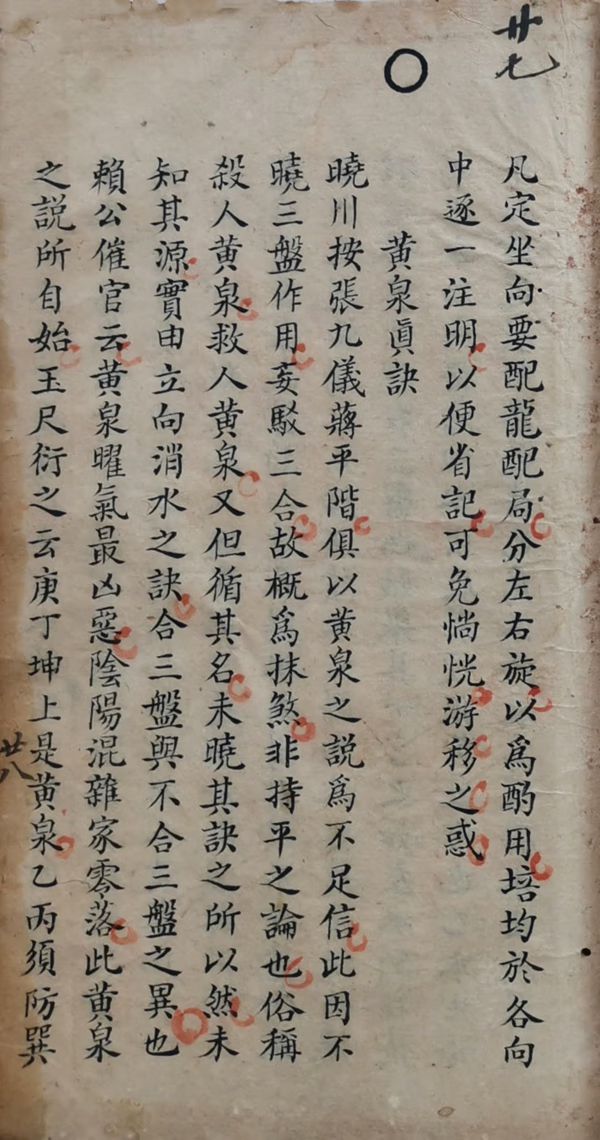 廿七
凡定坐向要配龍配局分左右旋以爲酌用培均於各向
中逐一注明以便省記可免惝恍游移之惑
黄泉眞訣
曉川按張九儀蔣平階俱以黄泉之説爲不足信此因不
曉三盤作用妄駁三合故概爲抹煞非持平之論也俗稱
殺人黄泉救人黄泉又但循其名未曉其訣之所以然未
知其源實由立向消水之訣合三盤與不合三盤之異也
賴公催官云黄泉曜氣最凶惡陰陽混雜家零落此黄泉
之説所自始玉尺衍之云庚丁坤上是黄泉乙丙須防巽
廿八